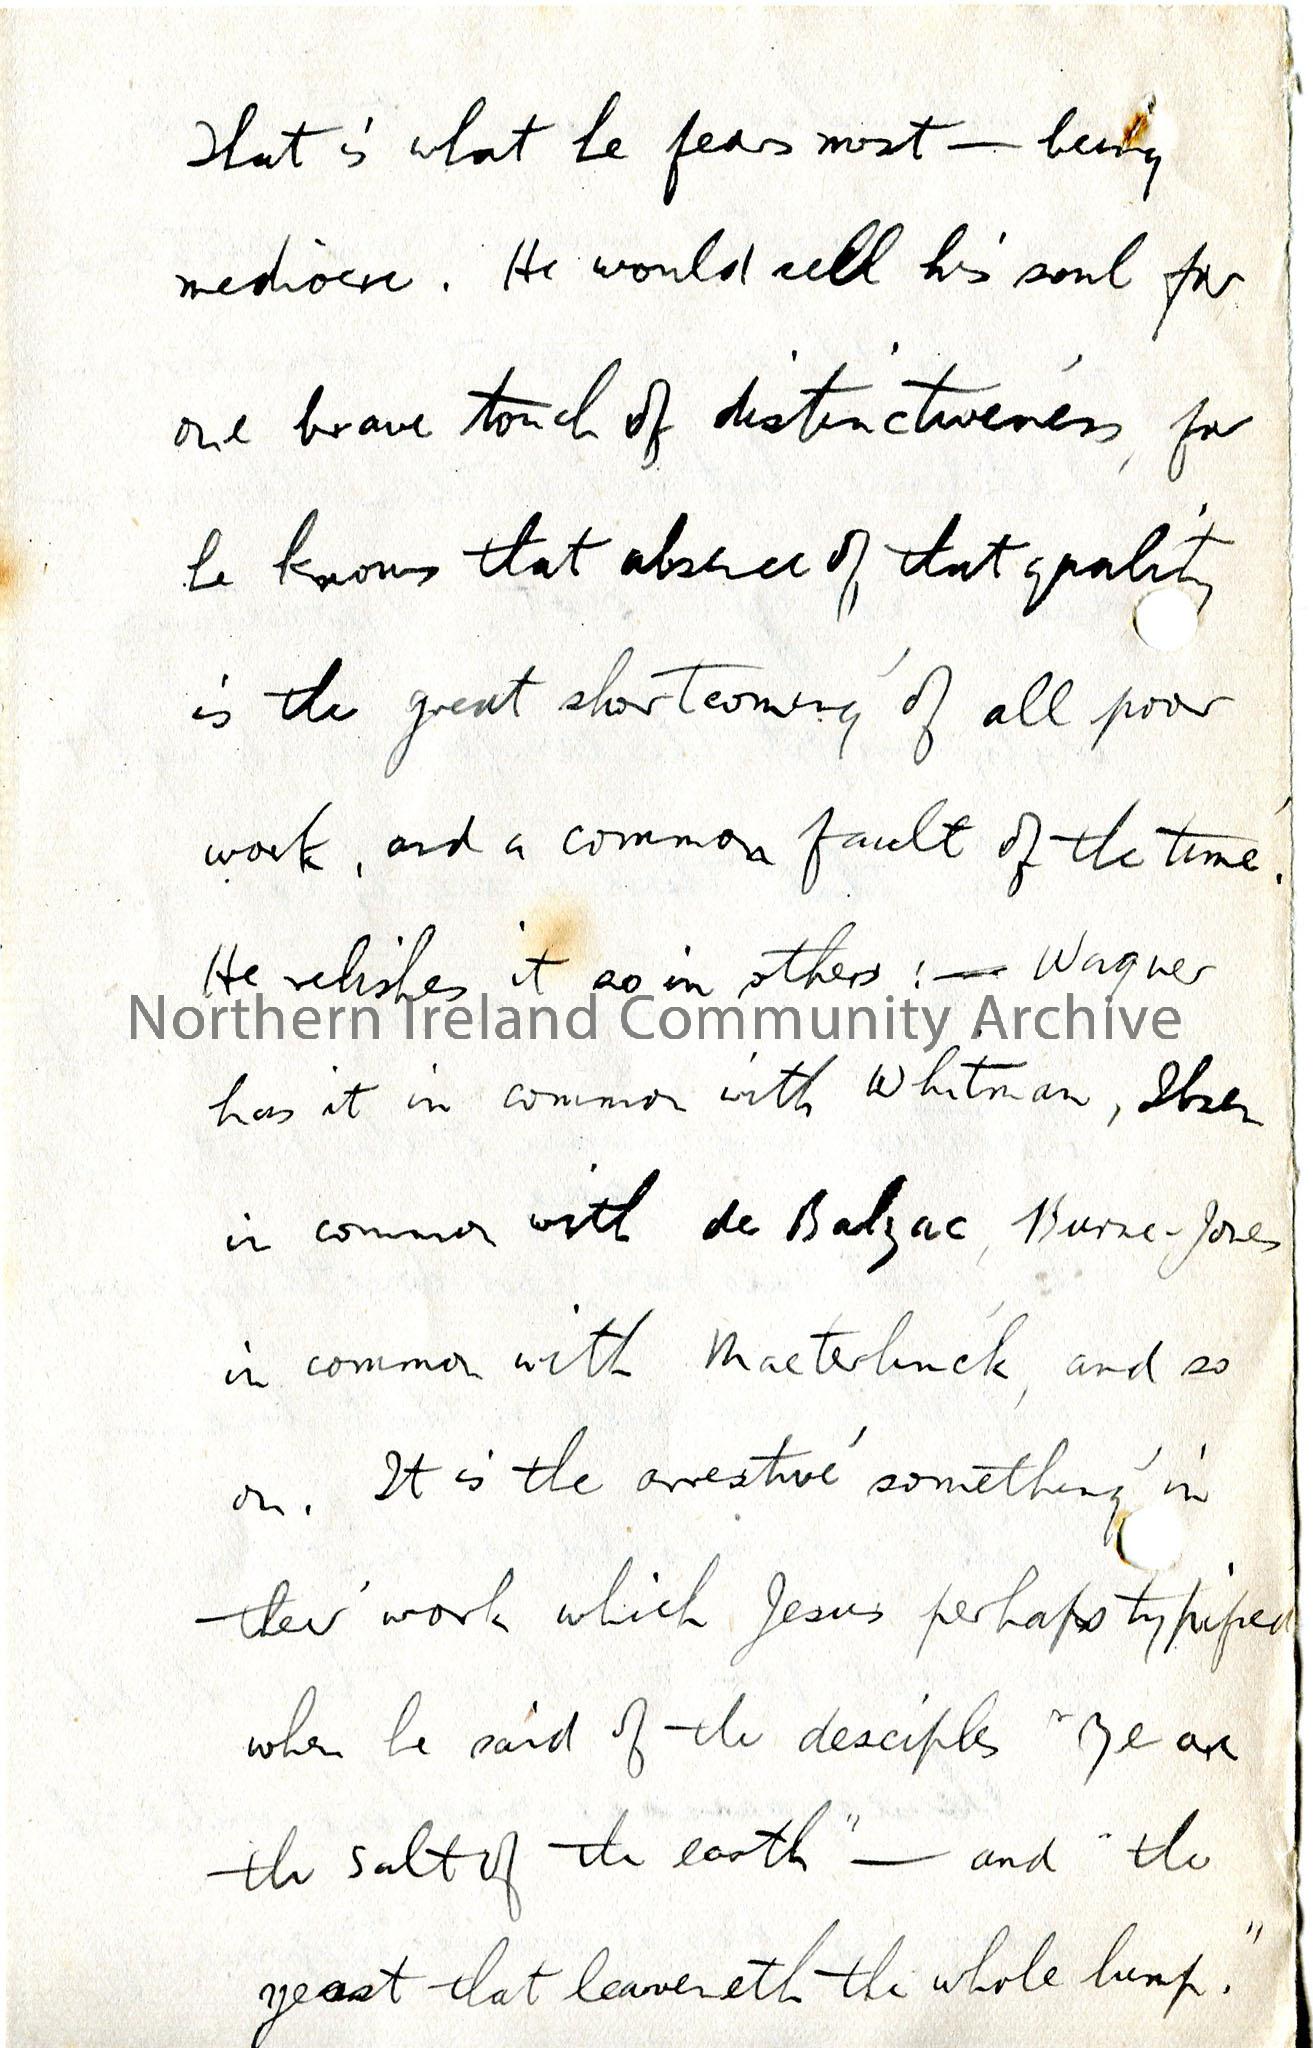 That is what he fears most — being
mediocre. He would sell his soul for
one brave touch of distinctiveness, for
he knows that absence of that quality
is the great shortcoming of all poor
work, and a common fault of the time.
He relishes it so in others: — Wagner
Northern Ireland Community Archive
has it in common with Whitman, Ibsen
in common with de Balzac, Burne-Jones
in common with Maeterlinck, and so
on. It is the arrestive something in
their work which Jesus perhaps typified
when he said of the desciples "Ye are
the salt of the earth" — and "the
yeast that leaveneth the whole lump."